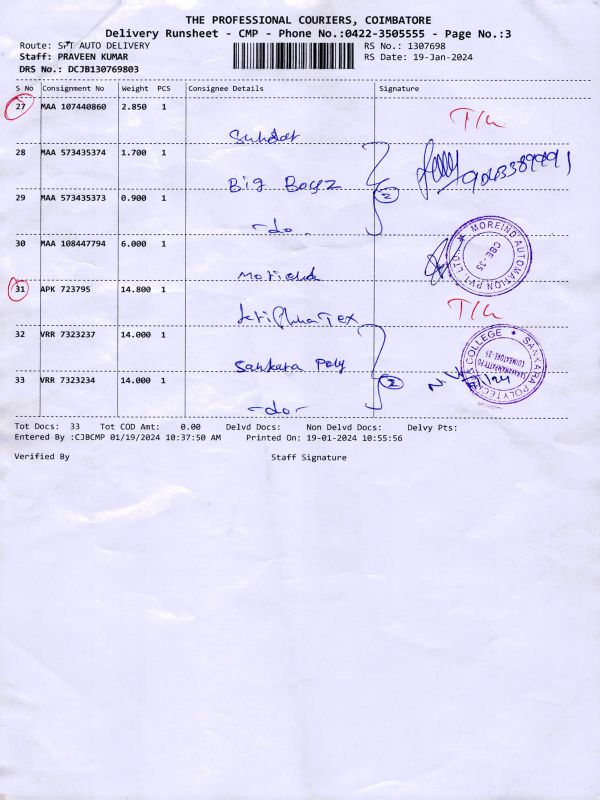 THE PROFESSIONAL COURIERS, COIMBATORE
Delivery Runsheet - CMP - Phone No.:0422-3505555 - Page No.:3
Route: SPT AUTO DELIVERY
RS No.: 1307698
Staff: PRAVEEN KUMAR
RS Date: 19-Jan-2024
DRS No.: DCJB130769803
S No Consignment No Weight PCS Consignee Details Signature
27 MAA 107440860 2.850 1
T/C
28 MAA 573435374 1.700 1
Big Boyz
2
29 MAA 573435373 0.900 1
-do-
30 MAA 108447794 6.000 1
MOREIND AUTOMATION PVT LTD
CBE-35
31 APK 723795 14.800 1
T/C
32 VRR 7323237 14.000 1
Sankara Poly
SANKARA POLYTECHNIC COLLEGE
COIMBATORE-35
2
33 VRR 7323234 14.000 1
-do-
Tot Docs: 33 Tot COD Amt: 0.00 Delvd Docs: Non Delvd Docs: Delvy Pts:
Entered By :CJBCMP 01/19/2024 10:37:50 AM Printed On: 19-01-2024 10:55:56
Verified By Staff Signature